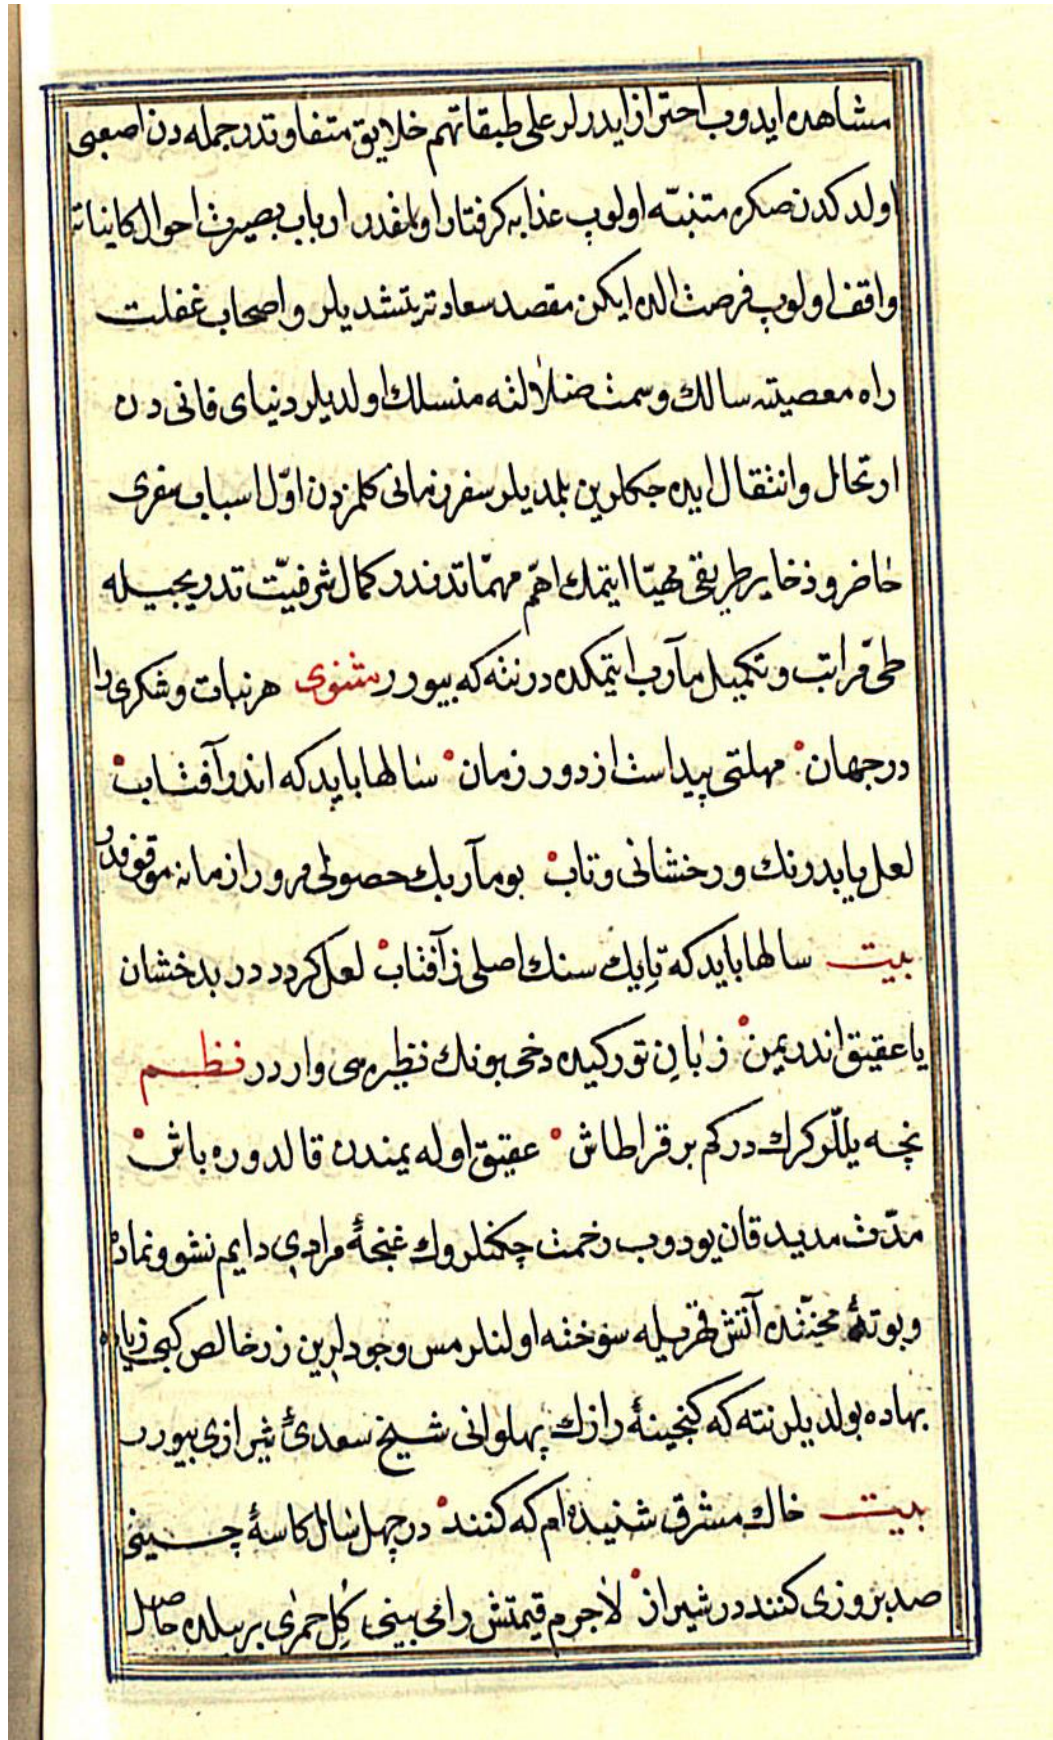 مشاهده ایدوب احتراز ایدرلر علی طبقاتهم خلایق متفاوتدر جمله دن اصعبی
اولدکدن صکره متنبّه اولوب عذابه کرفتار اولمقدر ارباب بصیرت احوال کایناته
واقف اولوب فرصت الده ایکن مقصد سعادته یتشدیلر و اصحاب غفلت
راه معصیته سالك و سمت ضلالته منسلك اولدیلر دنیای فانی دن
ارتحال و انتقال ایده جکلرین بلدیلر سفر زمانی کلمزدن اوّل اسباب سفری
حاضر و ذخایر طریقی مهیّا ایتمك اهمّ مهمّاتدندر کمال شرفیّت تدریجیله
طیّ مراتب و تکمیل مآرب ایتمکده در نته که بیورر مثنوی هر نبات و شکری را
در جهان مهلتی پیداست از دور زمان سالها باید که اندر آفتاب
لعل یابد رنك و رخشانی و تاب بو مآربك حصولی مرور ازمانه موقوفدر
بیت سالها باید که تا یك سنك اصلی ز آفتاب لعل کردد در بدخشان
یا عقیق اندر یمن زبان تورکیده دخی بونك نظیره سی واردر نظم
نچه یللّر کرك درکم بر قرا طاش عقیق اوله یمندن قالدوره باش
مدّت مدید قان یودوب زحمت چکنلروك غنچهٔ مرادی دایم نشو و نماده
و بوتهٔ محنتده آتش قهریله سوخته اولنلر مس وجودلرین زر خالص کبی زیاده
بهاده بولدیلر نته که کنجینهٔ رازك پهلوانی شیخ سعدیٔ شیرازی بیورر
بیت خاك مشرق شنیده ام که کنند در چهل سال کاسهٔ چینی
صد بروزی کنند در شیراز لاجرم قیمتش را می بینی کل حمرٰی بر ییلده حاصل